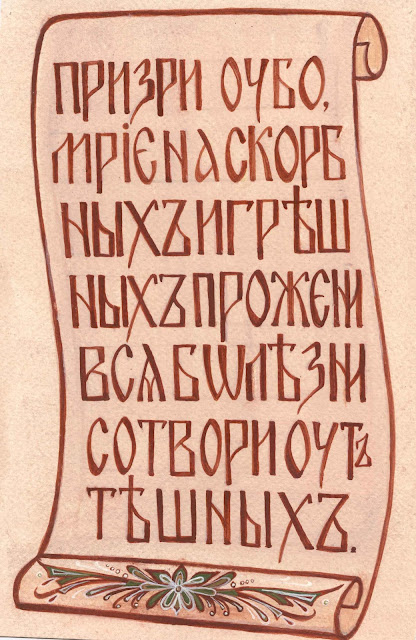 ПРИЗРИ ОУБО,
МРІЄ НА СКОРБ
НЫХЪ И ГРѢШ
НЫХЪ ПРОЖЕНИ
ВСѦ БѠЛѢЗНИ
СОТВОРИ ОУТЪ
ТѢШНЫХЪ.